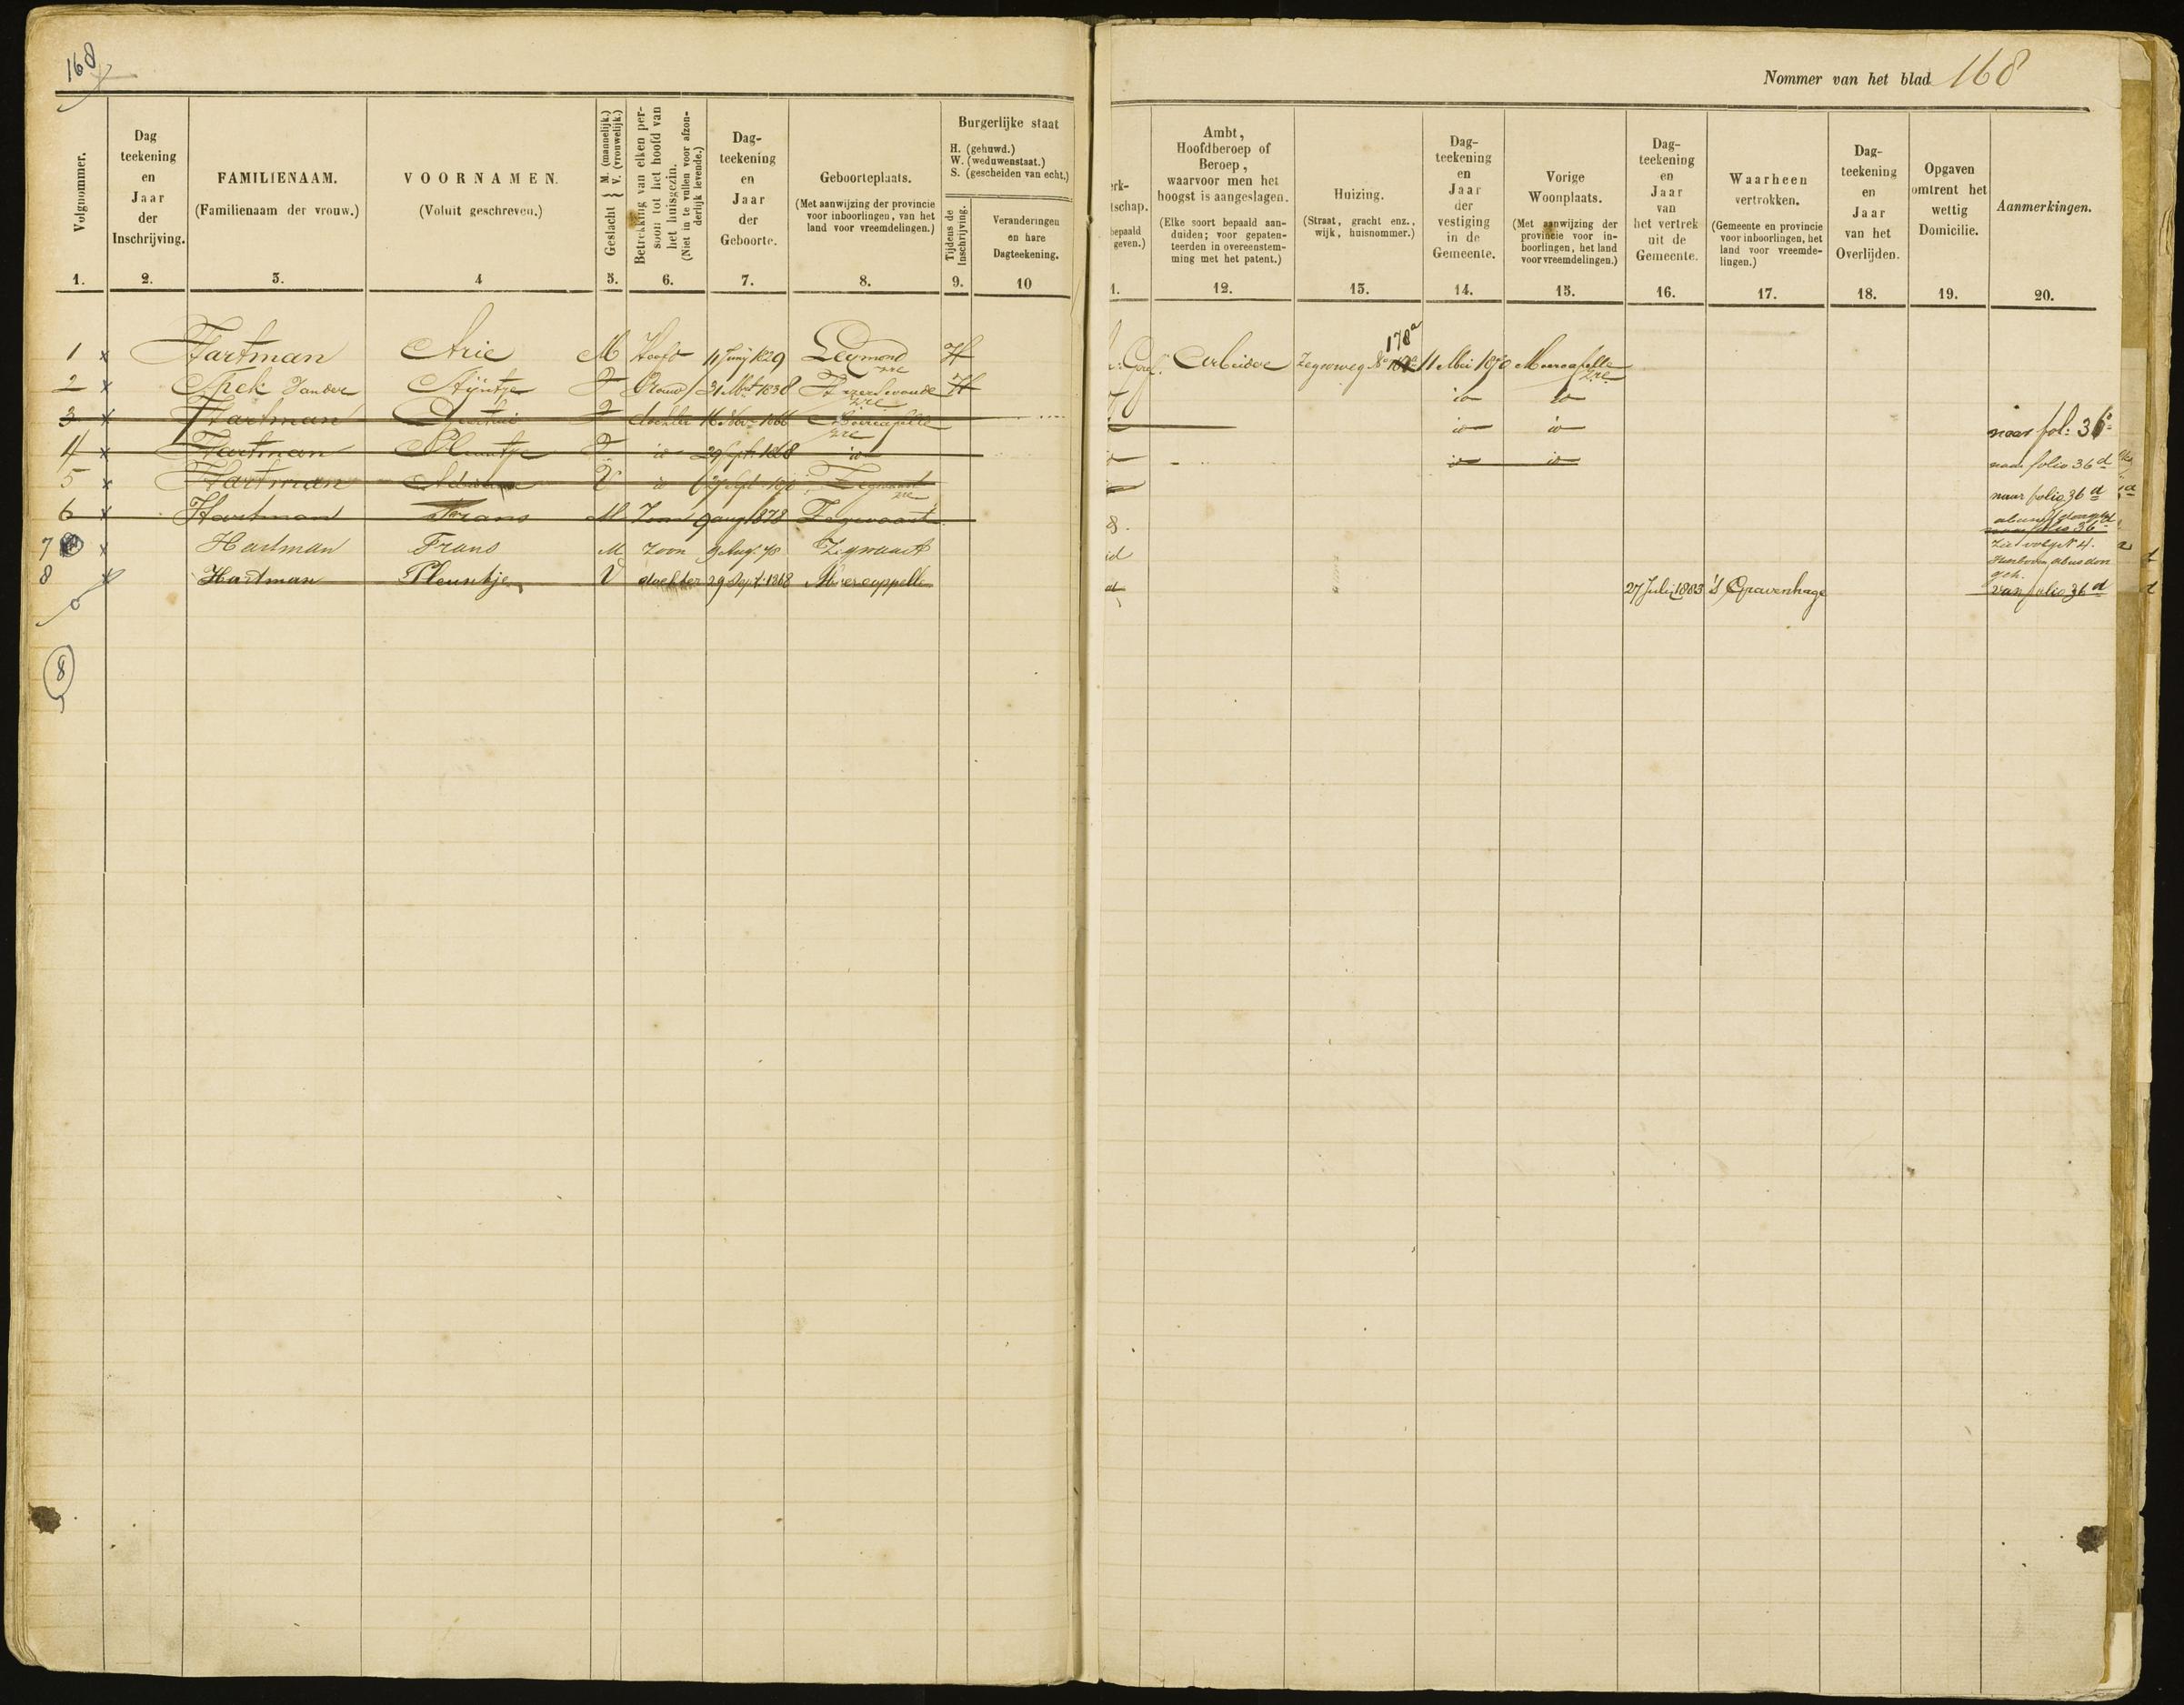 168
Nommer van het blad 168
Volgnommer.
1.
Dag
teekening
en
Jaar
der
Inschrijving.
2.
FAMILIENAAM.
(Familienaam der vrouw.)
3.
VOORNAMEN.
(Voluit geschreven.)
4
Geslacht } M. (mannelijk.) V. (vrouwelijk.)
5.
Betrekking van elken per-
soon tot het hoofd van
het huisgezin.
(Niet in te vullen voor afzon-
derlijk levende.)
6.
Dag-
teekening
en
Jaar
der
Geboorte.
7.
Geboorteplaats.
(Met aanwijzing der provincie
voor inboorlingen, van het
land voor vreemdelingen.)
8.
Burgerlijke staat
H. (gehuwd.)
W. (weduwenstaat.)
S. (gescheiden van echt.)
Tijdens de
Inschrijving.
9.
Veranderingen
en hare
Dagteekening.
10
erk-
tschap.
bepaald
geven.)
1.
Ambt,
Hoofdberoep of
Beroep,
waarvoor men het
hoogst is aangeslagen.
(Elke soort bepaald aan-
duiden; voor gepaten-
teerden in overeenstem-
ming met het patent.)
12.
Huizing.
(Straat, gracht enz.,
wijk, huisnommer.)
13.
Dag-
teekening
en
Jaar
der
vestiging
in de
Gemeente.
14.
Vorige
Woonplaats.
(Met aanwijzing der
provincie voor in-
boorlingen, het land
voor vreemdelingen.)
15.
Dag-
teekening
en
Jaar
van
het vertrek
uit de
Gemeente.
16.
Waarheen
vertrokken.
(Gemeente en provincie
voor inboorlingen, het
land voor vreemde-
lingen.)
17.
Dag-
teekening
en
Jaar
van het
Overlijden.
18.
Opgaven
omtrent het
wettig
Domicilie.
19.
Aanmerkingen.
20.
178a
1 x Hartman Arie M Hoofd 11 Junij 1829 H Arbeider Zegwweg No 11 Mei 1870 Moercapelle
2 x Spek van der Stijntje V Vrouw 31 Mrt 1838 H io io
3 x Hartman V dochter 16 Nov 1866 Moercapelle io io naar fol: 36
4 x Hartman Pleuntje V io 29 Sept 1868 io io io naar folio 36d
5 x Hartman V io Zegwaart naar folio 36d
6 x Hartman Frans M Zoon 9 aug 1878 Zegwaart
7 x Hartman Frans M zoon 9 Aug. 78 Zegwaart id zie volgN 4.
8 x Hartman Pleuntje V dochter 29 Sept. 1868 Moercappelle 27 Juli 1883 's Gravenhage van folio 36d
8